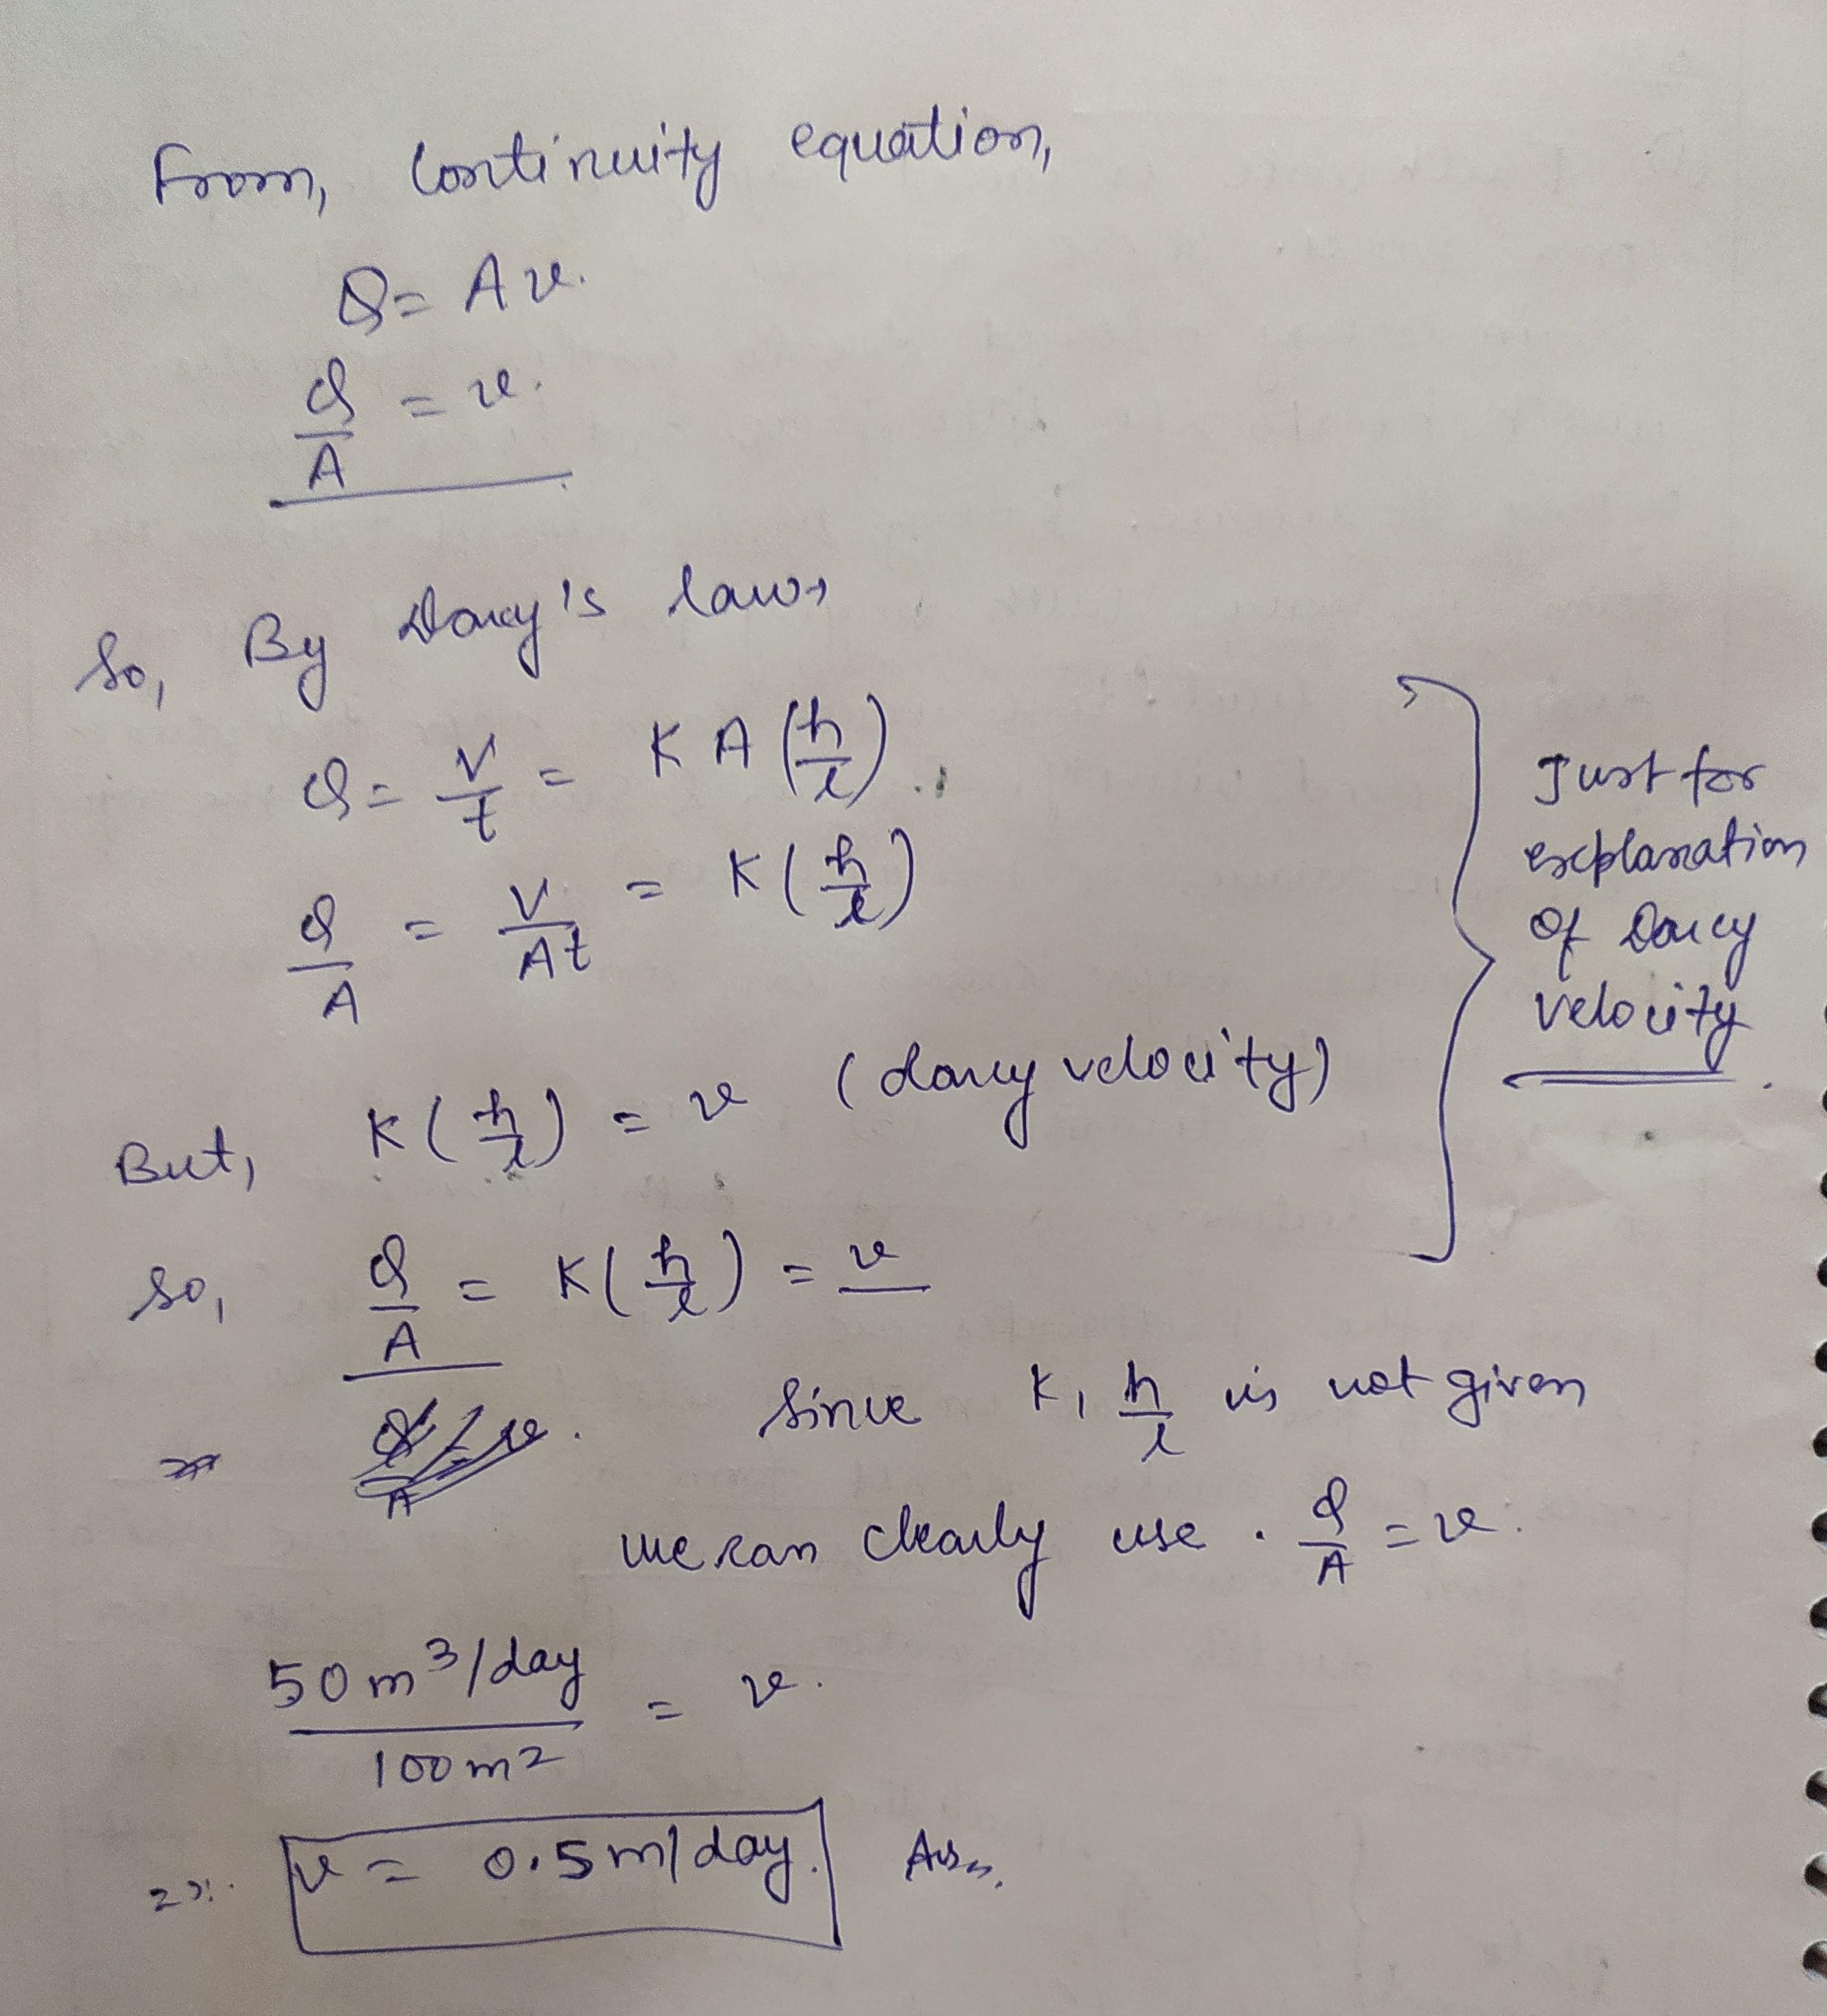 From, Continuity equation,
Q = A v.
Q/A = v.
So, By Darcy's law,
Q = V/t = K A (h/l).
Q/A = V/At = K (h/l)
But, K (h/l) = v (darcy velocity)
So, Q/A = K (h/l) = v
Just for
explanation
of Darcy
velocity
Since K, h/l is not given
we can clearly use . Q/A = v.
50 m³/day / 100 m² = v.
v = 0.5 m/day. Ans.